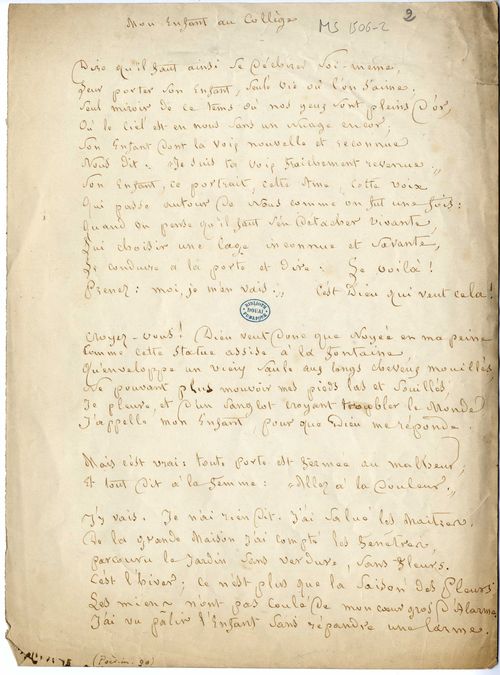 Mon Enfant au Collège
MS 1506-2
2
Dire qu'il faut ainsi se déchirer soi-même,
Leur porter son Enfant, seule vie où l'on s'aime,
Seul miroir de ce tems où nos yeux sont pleins d'or,
Où le ciel est en nous sans un nuage encor;
Son Enfant dont la voix nouvelle et reconnue
Nous dit: «Je suis ta voix fraîchement revenue»
Son Enfant, ce portrait, cette Âme, cette voix
Qui passe autour de Nous comme on fut une fois:
Quand on pense qu'il faut s'en détacher vivante,
Lui choisir une cage inconnue et savante,
Le conduire à la porte et dire: Le voilà!
Prenez: moi, je m'en vais... C'est Dieu qui veut cela!
BIBLIOTH DOUAI PUBLIQUE
Croyez-vous! Dieu veut donc que Noyée en ma peine
Comme cette statue assise à la fontaine,
Qu'enveloppe un vieux saule aux longs cheveux mouillés
Ne pouvant plus mouvoir mes pieds las et souillés
Je pleure, et d'un sanglot croyant troubler le Monde
J'appelle mon Enfant, pour que Dieu me réponde.
Mais c'est vrai: toute porte est fermée au malheur;
Et tout dit à la femme: «Allez à la douleur.»
J'y vais. Je n'ai rien dit. J'ai salué les Maîtres.
De la grande Maison j'ai compté les fenêtres,
parcouru le Jardin sans verdure, sans fleurs.
C'est l'hiver; ce n'est plus que la saison des pleurs
Les miens n'ont pas coulé de mon cœur gros d'Alarme
J'ai vu pâlir l'Enfant sans répandre une larme.